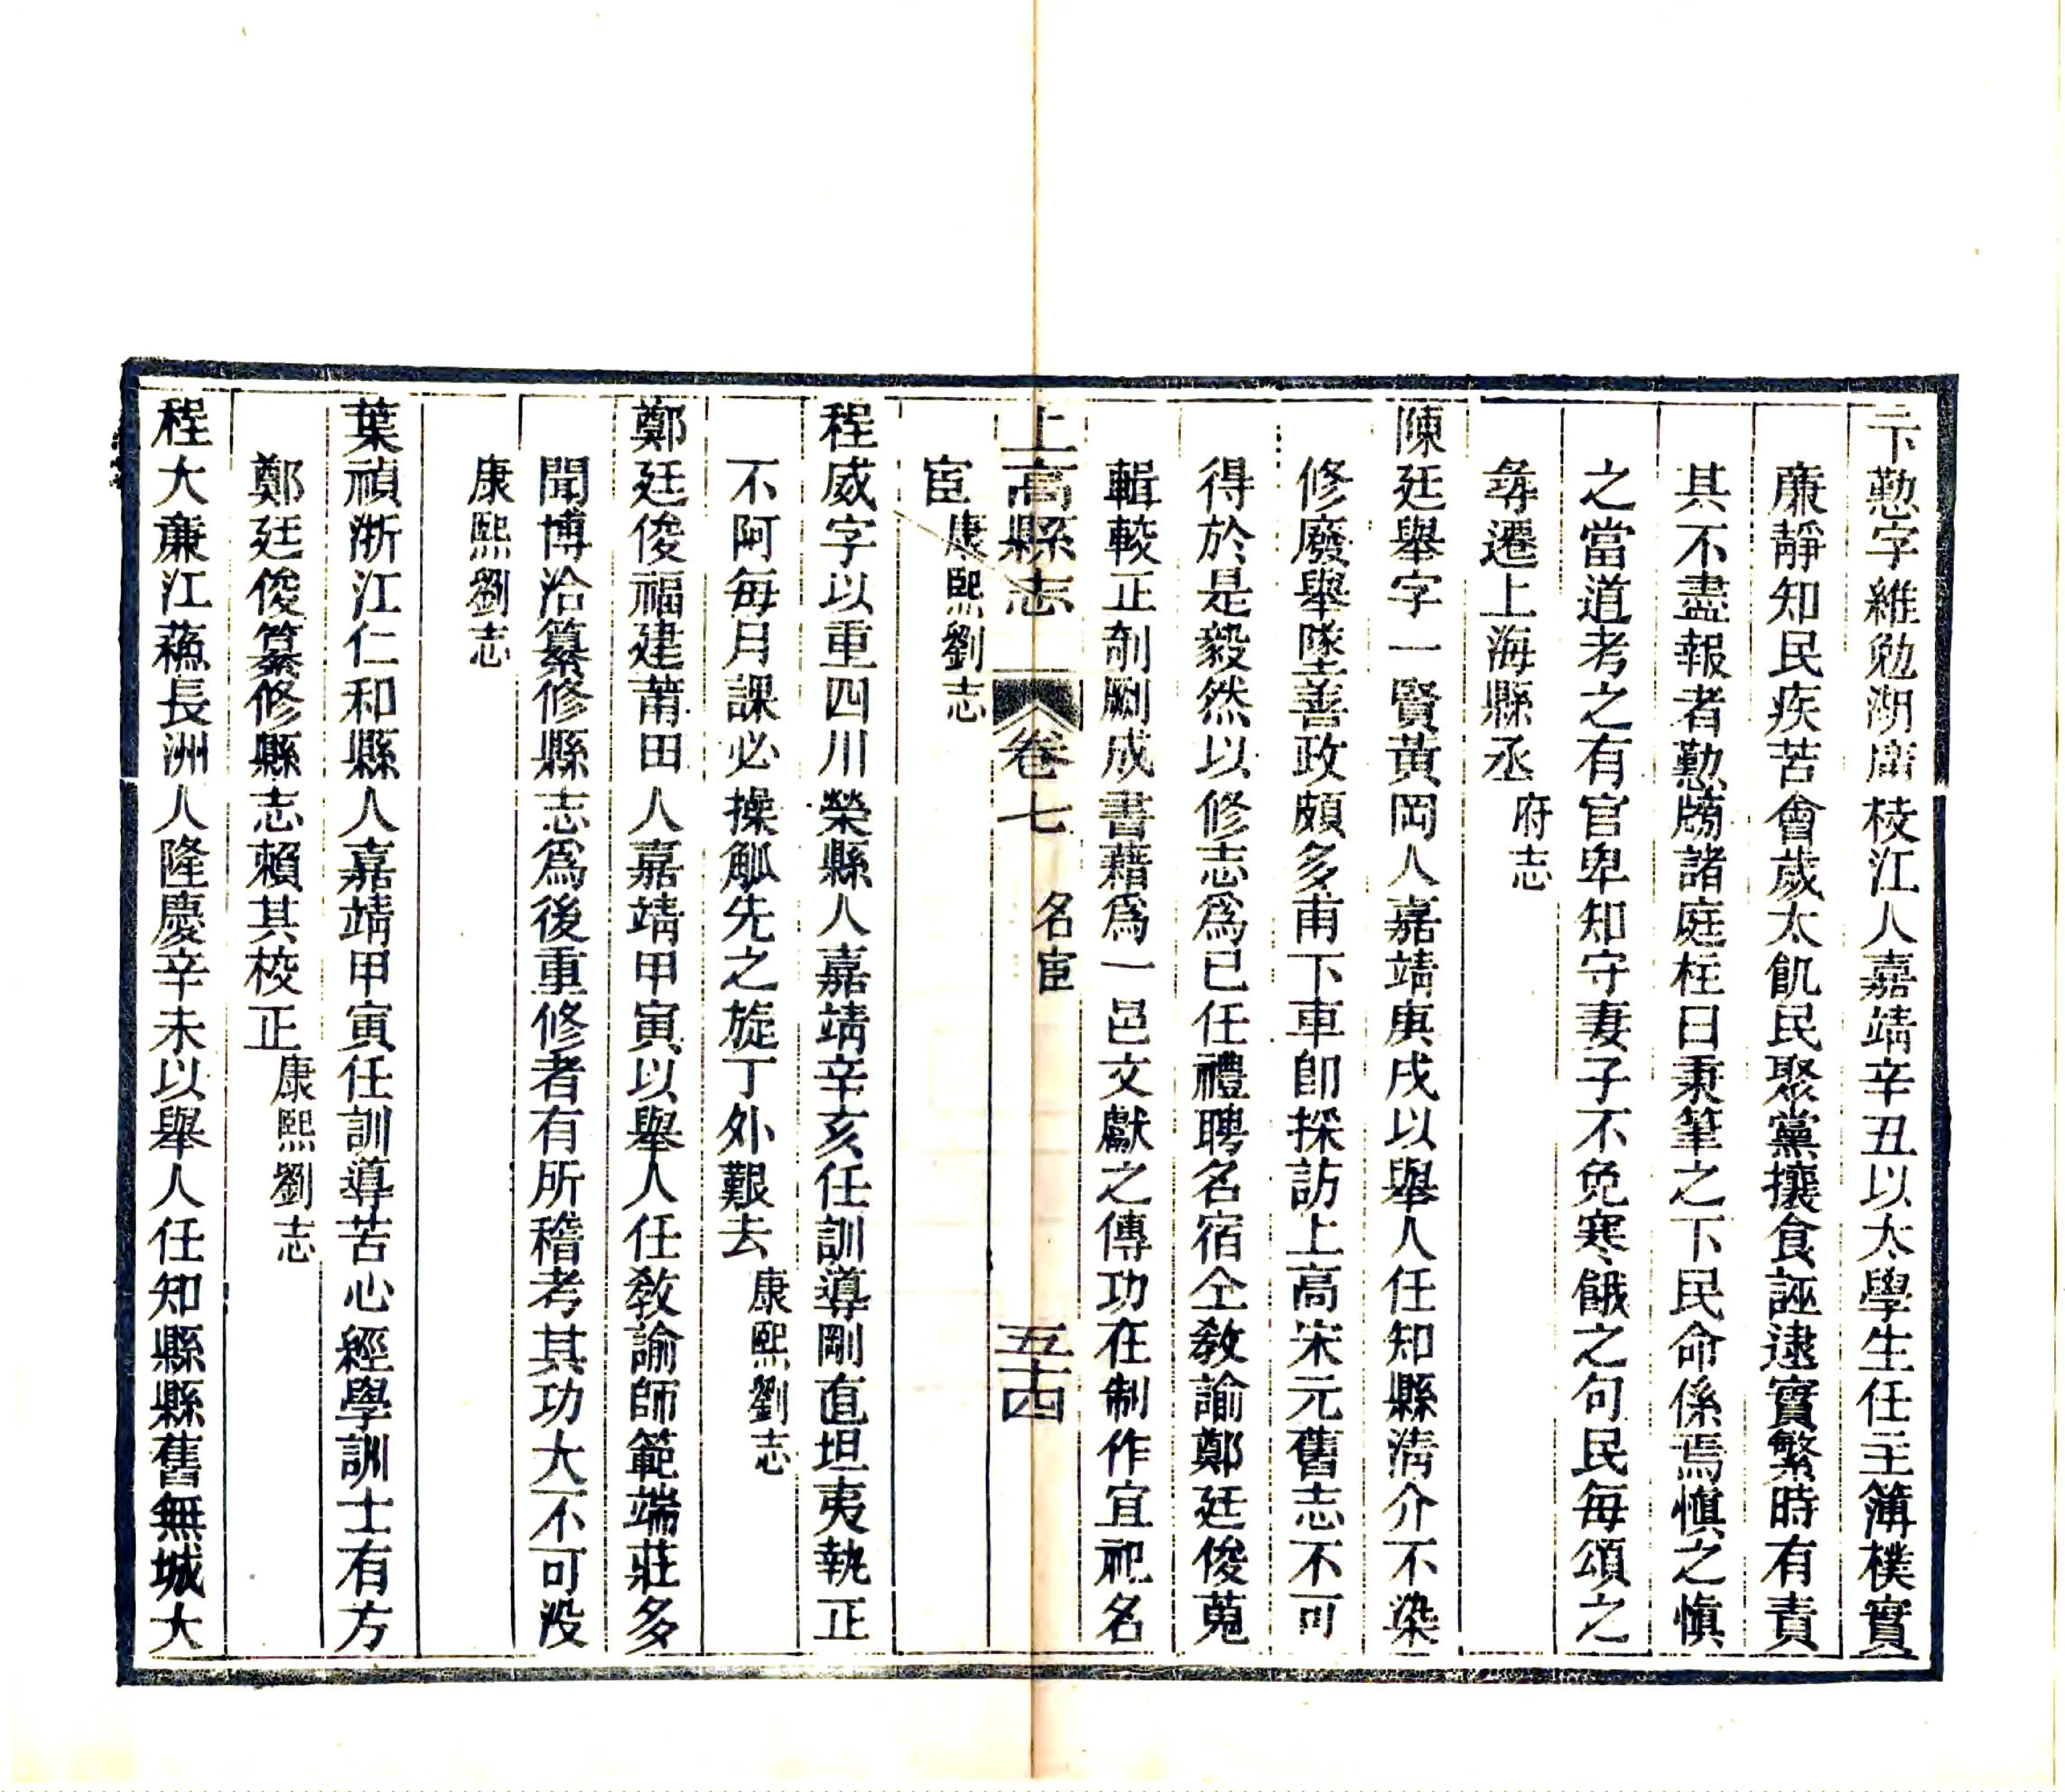 卞懃字維勉湖廣枝江人嘉靖辛丑以太學生任主簿樸實
廉靜知民疾苦會歲太飢民聚黨攘食誣逮實繁時有責
其不盡報者懃牓諸庭柱曰秉筆之下民命係焉慎之慎
之當道考之有官卑知守妻子不免寒餓之句民每頌之
尋遷上海縣丞府志
陳廷舉字一賢黃岡人嘉靖庚戌以舉人任知縣淸介不染
修廢舉墜善政頗多甫下車卽採訪上高宋元舊志不可
得於是毅然以修志爲己任禮聘名宿仝敎諭鄭廷俊蒐
輯較正剞劂成書藉爲一邑文獻之傳功在制作宜祀名
宦康熙劉志
上高縣志 卷七 名宦 五十四
程威字以重四川榮縣人嘉靖辛亥任訓導剛直坦夷執正
不阿每月課必操觚先之旋丁外艱去康熙劉志
鄭廷俊福建莆田人嘉靖甲寅以舉人任敎諭師範端莊多
聞博洽纂修縣志爲後重修者有所稽考其功大不可没
康熙劉志
葉禎浙江仁和縣人嘉靖甲寅任訓導苦心經學訓士有方
鄭廷俊纂修縣志賴其校正康熙劉志
程大廉江蘓長洲人隆慶辛未以舉人任知縣縣舊無城大